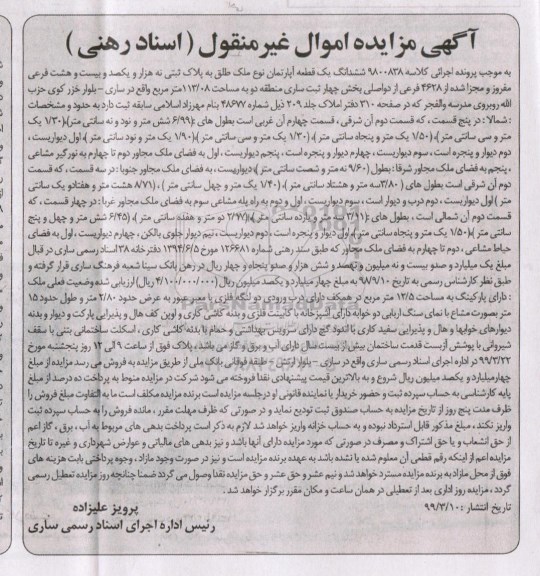 آگهی مزایده اموال غیرمنقول (اسناد رهنی)
به موجب پرونده اجرائی کلاسه ۹۸۰۰۸۳۸ ششدانگ یک قطعه آپارتمان نوع ملک طلق به پلاک ثبتی نه هزار و یکصد و بیست و هشت فرعی
مفروز و مجزا شده از ۴۶۲۸ فرعی از دواصلی بخش چهار ثبت ساری منطقه دو به مساحت ۱۱۳/۰۸ متر مربع واقع در ساری – بلوار خزر کوی حزب
الله روبروی مدرسه والفجر که در صفحه ۳۱۰ دفتر املاک جلد ۲۰۹ ذیل شماره ۴۸۶۷۷ بنام مهرزاد اسلامی سابقه ثبت دارد به حدود و مشخصات
: شمالا : در پنج قسمت ، که قسمت دوم آن شرقی ، قسمت چهارم آن غربی است بطول های :(۶/۹۹ شش متر و نود و نه سانتی متر)،(۱/۳۰ یک
متر و سی سانتی متر)، (۱/۵۰ یک متر و پنجاه سانتی متر)، (۱/۳۰ یک متر و سی سانتی متر)،(۱/۹۰ یک متر و نود سانتی متر)، اول دیواریست ،
دوم دیوار و پنجره است ، سوم دیواریست ، چهارم دیوار و پنجره است ، پنجم دیواریست ، اول به فضای ملک مجاور دوم تا چهارم به نورگیر مشاعی
، پنجم به فضای ملک مجاور شرقا : بطول (۹/۶۰ نه متر و شصت سانتی متر) دیواریست ، به فضای ملک مجاور جنوبا : در سه قسمت ، که قسمت
دوم آن شرقی است بطول های : (۳/۸۰ سه متر و هشتاد سانتی متر)، (۱/۴۰ یک متر و چهل سانتی متر) ، (۸/۷۱ هشت متر و هفتاد و یک سانتی
متر) اول دیواریست ، دوم درب و دیوار است ، سوم دیواریست ، اول و دوم به راه پله مشاعی سوم به فضای ملک مجاور غربا : در چهار قسمت ، که
قسمت دوم آن شمالی است ، بطول های :(۳/۱۱ سه متر و یازده سانتی متر)،(۲/۷۷ دو متر و هفتاد و هفت سانتی متر)،(۶/۴۵ شش متر و چهل و پنج
سانتی متر)،(۱/۵۰ یک متر و پنجاه سانتی متر)، اول دیوار و پنجره است ، دوم دیواریست ، سوم نیم دیوار جلوی بالکن ، چهارم دیواریست ، اول به فضای
حیاط مشاعی ، دوم تا چهارم به فضای ملک مجاور که طبق سند رهنی شماره ۱۲۶۶۸۱ مورخ ۱۳۹۴/۶/۵ دفترخانه ۳۸ اسناد رسمی ساری در قبال
مبلغ یک میلیارد و صدو بیست و نه میلیون و نهصد و شش هزار و صدو پنجاه و چهار ریال در رهن بانک سینا شعبه فرهنگ ساری قرار گرفته و
طبق نظر کارشناس رسمی به تاریخ ۹۸/۹/۱۰ به مبلغ چهار میلیارد و یکصد میلیون ریال (۴/۱۰۰/۰۰۰/۰۰۰ ریال) ارزیابی شده وضعیت فعلی ملک
: دارای پارکینگ به مساحت ۱۲/۵ متر مربع در همکف دارای درب ورودی دو لنگه فلزی با مسیر عبور به عرض حدود ۲/۸۰ متر و طول حدود ۱۵
متر بصورت مشاع با نمای سنگ اربابی دو خوابه دارای آشپزخانه با کابینت فلزی و بدنه کاشی کاری و اوپن کف هال و پذیرایی پارکت و دیوار و بدنه
دیوارهای خوابها و هال و پذیرایی سفید کاری با اندود گچ دارای سرویس بهداشتی و حمام با بدنه کاشی کاری ، اسکلت ساختمانی بتنی با سقف
شیروانی با پوشش آزبست قدمت ساختمان بیش از بیست سال دارای آب و برق و گاز می باشد ، پلاک فوق از ساعت ۹ الی ۱۲ روز پنجشنبه مورخ
۹۹/۳/۲۲ در اداره اجرای اسناد رسمی ساری واقع در ساری – بلوار ارتش – طبقه فوقانی بانک ملی از طریق مزایده به فروش می رسد مزایده از مبلغ
چهارمیلیارد و یکصد میلیون ریال شروع و به بالاترین قیمت پیشنهادی نقدا فروخته می شود شرکت در مزایده منوط به پرداخت ده درصد از مبلغ
پایه کارشناسی به حساب سپرده ثبت و حضور خریدار یا نماینده قانونی او درجلسه مزایده است برنده مزایده مکلف است ما به التفاوت مبلغ فروش را
ظرف مدت پنج روز از تاریخ مزایده به حساب صندوق ثبت تودیع نماید و در صورتی که ظرف مهلت مقرر ، مانده فروش را به حساب سپرده ثبت
واریز نکند ، مبلغ مذکور قابل استرداد نبوده و به حساب خزانه واریز خواهد شد لازم به ذکر است پرداخت بدهی های مربوط به آب ، برق ، گاز اعم
از حق انشعاب و یا حق اشتراک و مصرف در صورتی که مورد مزایده دارای آنها باشد و نیز بدهی های مالیاتی و عوارض شهرداری و غیره تا تاریخ
مزایده اعم از اینکه رقم قطعی آن معلوم شده یا نشده باشد به عهده برنده مزایده است و نیز در صورت وجود مازاد ، وجوه پرداختی بابت هزینه های
فوق از محل مازاد به برنده مزایده مسترد خواهد شد و نیم عشر و حق عشر و حق مزایده نقدا وصول می گردد ضمنا چنانچه روز مزایده تعطیل رسمی
گردد ، مزایده روز اداری بعد از تعطیلی در همان ساعت و مکان مقرر برگزار خواهد شد .
تاریخ انتشار : ۹۹/۳/۱۰
پرویز علیزاده
رئیس اداره اجرای اسناد رسمی ساری